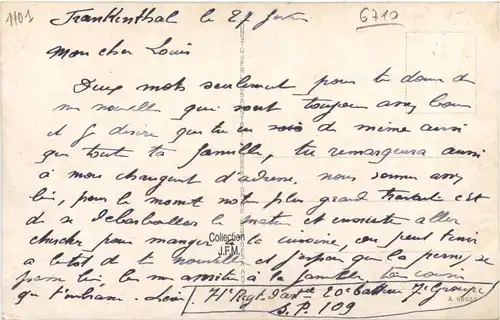 1101
6710
Frankenthal le 27 février
Mon cher Louis
Deux mots seulement pour te donner de
mes nouvelles qui sont toujours assez bonnes
et je désire que tu en sois de même ainsi
que tout ta famille, tu remarquera aussi
à mon changement d'adresse. nous sommes assez
bien, pour le moment notre plus grand travail est
de se débarbouiller le matin et ensuite aller
chercher pour manger à la cuisine, on peut tenir
a tes nouvelles et j'espère que la
bien, à la famille ton cousin
qui t'embrasse. Léon
Collection
J.F.M.
71e Regt d'art 20e batterie 7e Groupe
S.P. 109